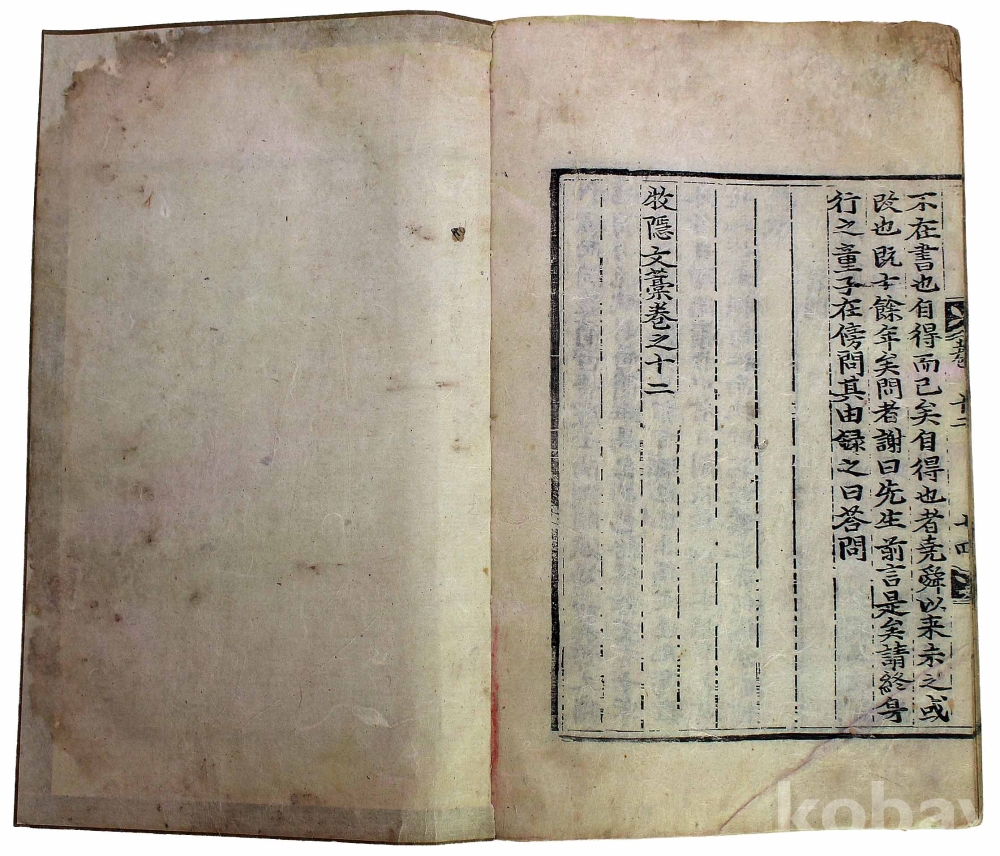 不在書也自得而已矣自得也者堯舜以来未之或
改也既十餘年矣問者謝曰先生前言是矣請終身
行之童子在傍問其由録之曰荅問
牧隱文藁卷之十二
十二
十四
kobay